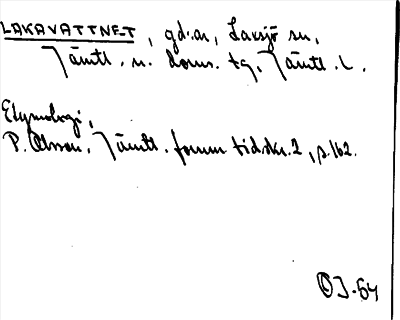 LAKAVATTNET, gd:ar, Laxsjö sn,
Jämtl. n. doms. tg, Jämtl. l.
Etymologi,
P. Olsson, Jämtl. fornm tidskr. 2, s. 162.
OJ-64